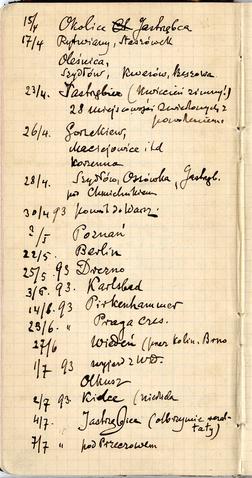 15/4 Okolice Jastrzębca
17/4 Rytwiany, Staszówek
Oleśnica,
Szydłów, Kurozwę, Beszowa
23/4. Jastrzębiec (
28 miejscowości związanych z
powstaniem
26/4.
Maciejowice itd
Korzenna
28/4. Szydłów, Ossówka, Jastrzęb.
pod Chmielnikiem
30/4 93 powrót do Warsz.
2/5 Poznań
22/5. Berlin
25/5. 93 Drezno
3/6. 93 Karlsbad
14/6. 93 Pirkenhammer
23/6. " Praga czes.
27/6 Wiedeń (przez Kolin, Brno
1/7 93 wyjazd z Wd.
Olkusz
2/7 93 Kielce (niedziela
4/7. Jastrzębiec (olbrzymie
7/7 " pod Przeczowem